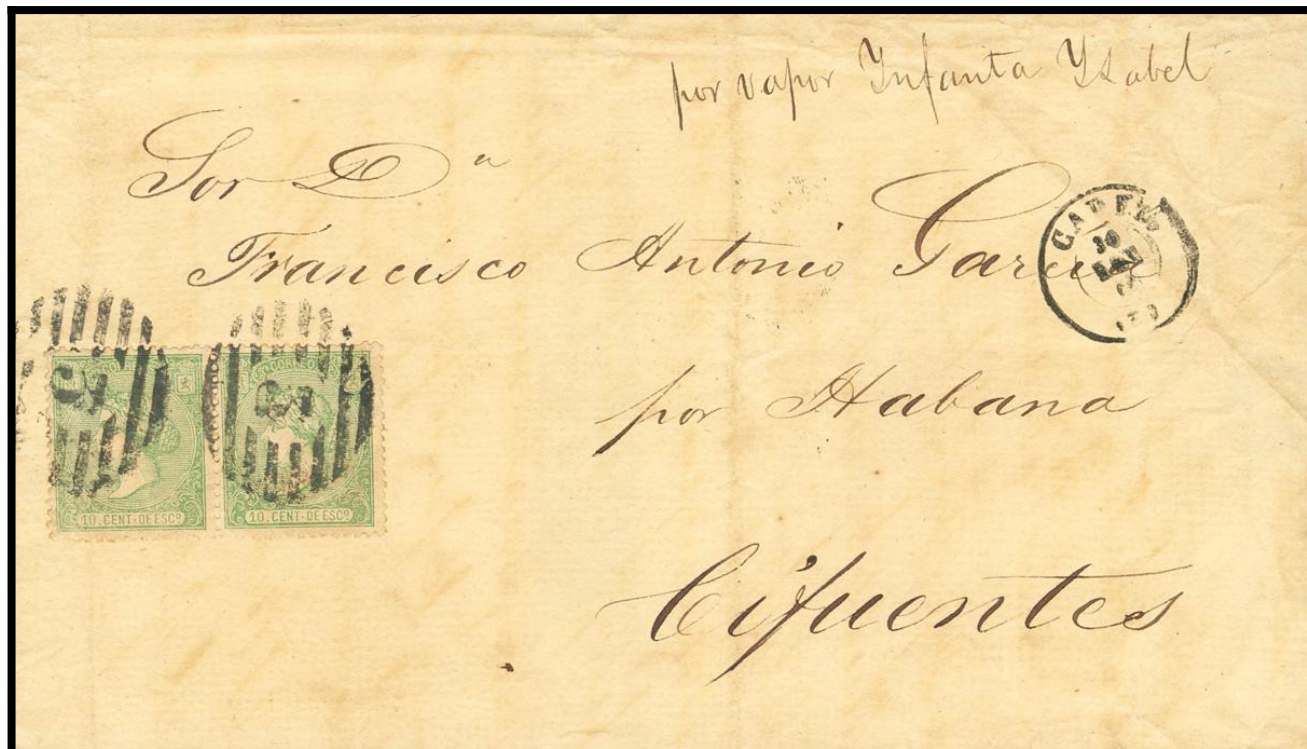 por vapor Ynfanta Ysabel
Sor Dn
Francisco Antonio Garcia
CADIZ
30
por Habana
10.CENT.DE ESCO 10.CENT.DE ESCO
Cifuentes